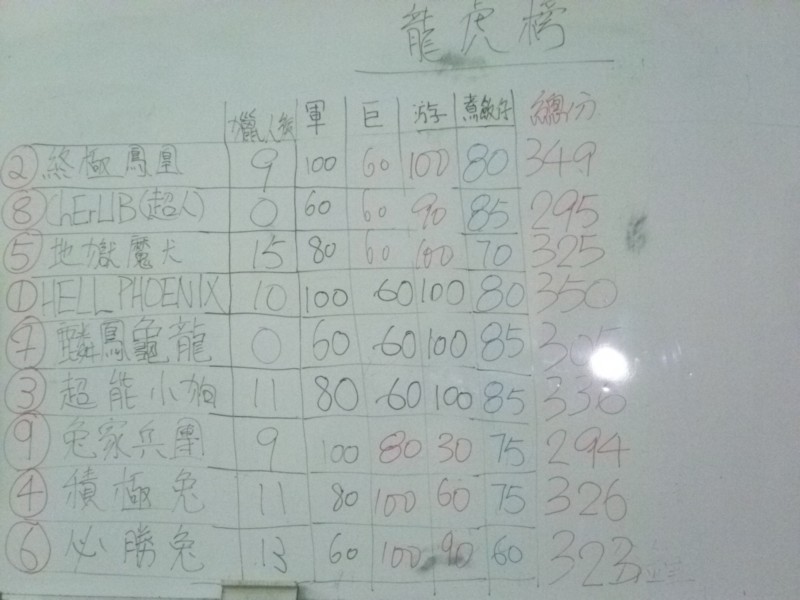 龍虎榜
獵人類 軍 巨 游 煮飯仔 總份
② 終極鳳凰 9 100 60 100 80 349
⑧ ChErUB(超人) 0 60 60 90 85 295
⑤ 地獄魔犬 15 80 60 100 70 325
① HELL PHOENIX 10 100 60 100 80 350
⑦ 麟鳳龜龍 0 60 60 100 85 305
③ 超能小狗 11 80 60 100 85 336
⑨ 兔家兵團 9 100 80 30 75 294
④ 積極兔 11 80 100 60 75 326
⑥ 必勝兔 13 60 100 90 60 323